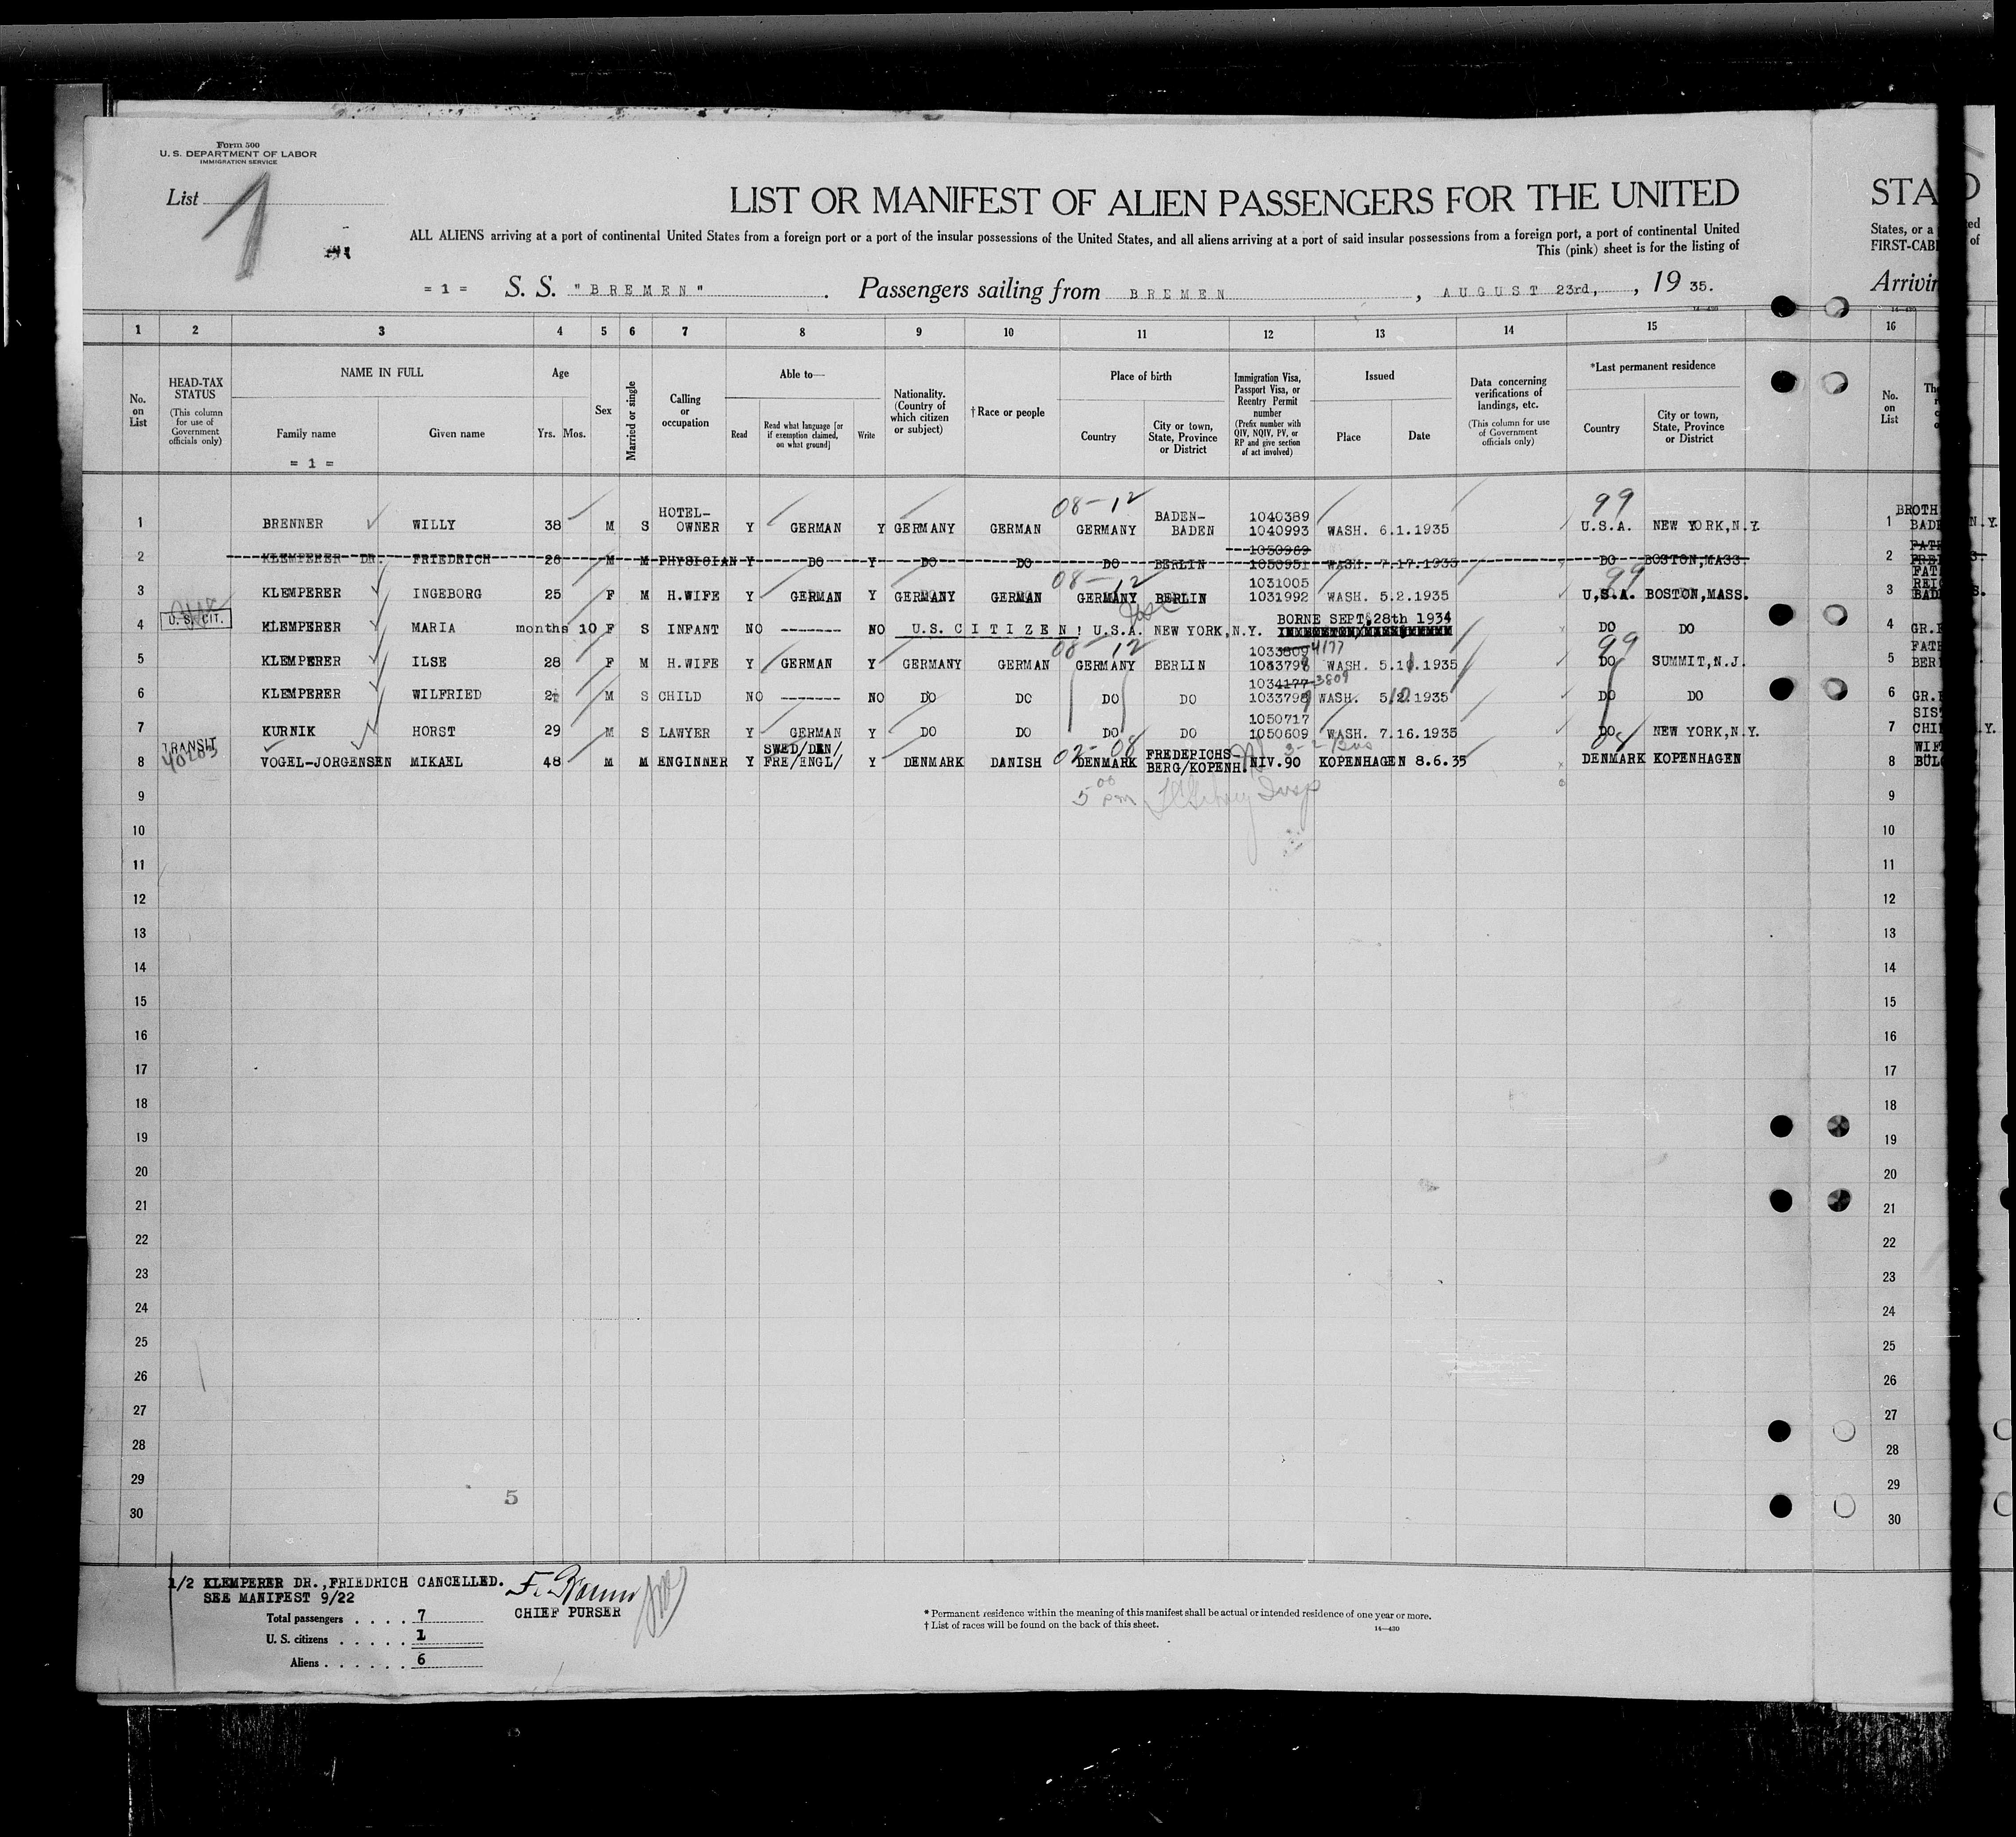 Form 500
U. S. DEPARTMENT OF LABOR
IMMIGRATION SERVICE
List 1
LIST OR MANIFEST OF ALIEN PASSENGERS FOR THE UNITED
ALL ALIENS arriving at a port of continental United States from a foreign port or a port of the insular possessions of the United States, and all aliens arriving at a port of said insular possessions from a foreign port, a port of continental United
This (pink) sheet is for the listing of
= 1 = S. S. "BREMEN" . Passengers sailing from BREMEN , AUGUST 23rd, , 19 35.
STA
States, or a
FIRST-CAB
Arrivin
1 2 3 4 5 6 7 8 9 10 11 12 13 14 15 16
No. on List
HEAD-TAX STATUS (This column for use of Government officials only)
NAME IN FULL
Family name Given name
= 1 =
Age
Yrs. Mos.
Sex
Married or single
Calling or occupation
Able to—
Read Read what language [or if exemption claimed, on what ground] Write
Nationality. (Country of which citizen or subject)
† Race or people
Place of birth
Country City or town, State, Province or District
Immigration Visa, Passport Visa, or Reentry Permit number (Prefix number with QIV, NQIV, PV, or RP and give section of act involved)
Issued
Place Date
Data concerning verifications of landings, etc. (This column for use of Government officials only)
*Last permanent residence
Country City or town, State, Province or District
No. on List
08-12 99
1 BRENNER WILLY 38 M S HOTEL-OWNER Y GERMAN Y GERMANY GERMAN GERMANY BADEN-BADEN 1040389 1040993 WASH. 6.1.1935 U.S.A. NEW YORK,N.Y. 1 BROTH BADE N.Y.
2 KLEMPERER DR. FRIEDRICH 26 M M PHYSICIAN Y DO Y DO DO DO BERLIN 1050969 1050951 WASH. 7.17.1935 DO BOSTON,MASS. 2
08-12 99
3 KLEMPERER INGEBORG 25 F M H.WIFE Y GERMAN Y GERMANY GERMAN GERMANY BERLIN 1031005 1031992 WASH. 5.2.1935 U,S.A. BOSTON,MASS. 3 FAT REIC BADE S.
U. S. CIT.
4 KLEMPERER MARIA months 10 F S INFANT NO ------- NO U.S. CITIZEN! U.S.A. NEW YORK,N.Y. BORNE SEPT,28th 1934 DO DO 4 GR.F
08-12 99
5 KLEMPERER ILSE 28 F M H.WIFE Y GERMAN Y GERMANY GERMAN GERMANY BERLIN 1033809 4177 WASH. 5.1 .1935 DO SUMMIT,N.J. 5 FATE BER
6 KLEMPERER WILFRIED M S CHILD NO ------- NO DO DO DO DO 1034177 3809 WASH. DO DO 6 GR.F
7 KURNIK HORST 29 M S LAWYER Y GERMAN Y DO DO DO DO 1050717 1050609 WASH. 7.16.1935 DO NEW YORK,N.Y. 7 SIS CHI Y.
TRANSIT
02-08 08
8 VOGEL-JORGENSEN MIKAEL 48 M M ENGINNER Y SWED/DEN/ FRE/ENGL/ Y DENMARK DANISH DENMARK FREDERICHS-BERG/KOPENH. NIV.90 KOPENHAGEN 8.6.35 DENMARK KOPENHAGEN 8 WIF BULO
5 00 pm Insp
9 9
10 10
11 11
12 12
13 13
14 14
15 15
16 16
17 17
18 18
19 19
20 20
21 21
22 22
23 23
24 24
25 25
26 26
27 27
28 28
29 29
5
30 30
1/2 KLEMPERER DR.,FRIEDRICH CANCELLED.
SEE MANIFEST 9/22
CHIEF PURSER
Total passengers . . . . 7
U. S. citizens . . . . . 1
Aliens . . . . . . 6
* Permanent residence within the meaning of this manifest shall be actual or intended residence of one year or more.
† List of races will be found on the back of this sheet.
14—430